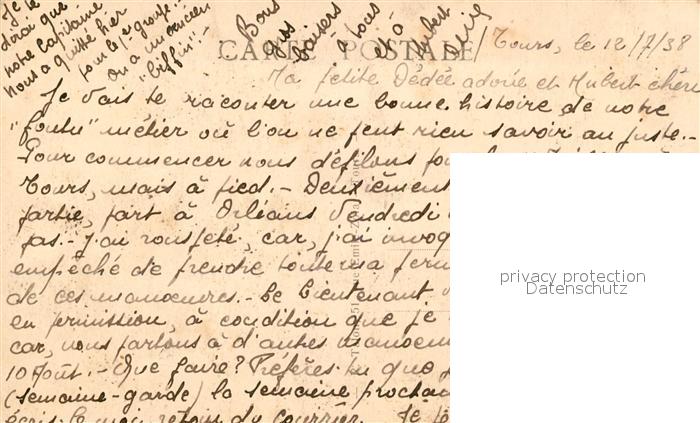 Je te
dirai que
notre Capitaine
nous a quitté hier
pour le 1er groupe.-
On a un ancien
"biffin".-
Bons
gros
baisers
à tous
et à
Hubert
CARTE POSTALE
Tours, le 12/7/38
Ma petite Dédée adorée et Hubert chéri
Je vais te raconter une bonne histoire de notre
"foutu" métier où l'on ne peut rien savoir au juste.-
Pour commencer nous défilons
Tours, mais à pied.- Deuxièment
partie, part à Orléans Vendredi
pas.- J'ai rouspété, car, j'ai
empêché de prendre toute ma
de ces manoeuvres.- Le Lieutenant
en permission, à condition que je
car, nous partons à d'autres
10 Août.- Que faire? Préfères-tu que
(semaine-garde) la semaine
écris-le moi retour du courrier. Je
privacy protection
Datenschutz